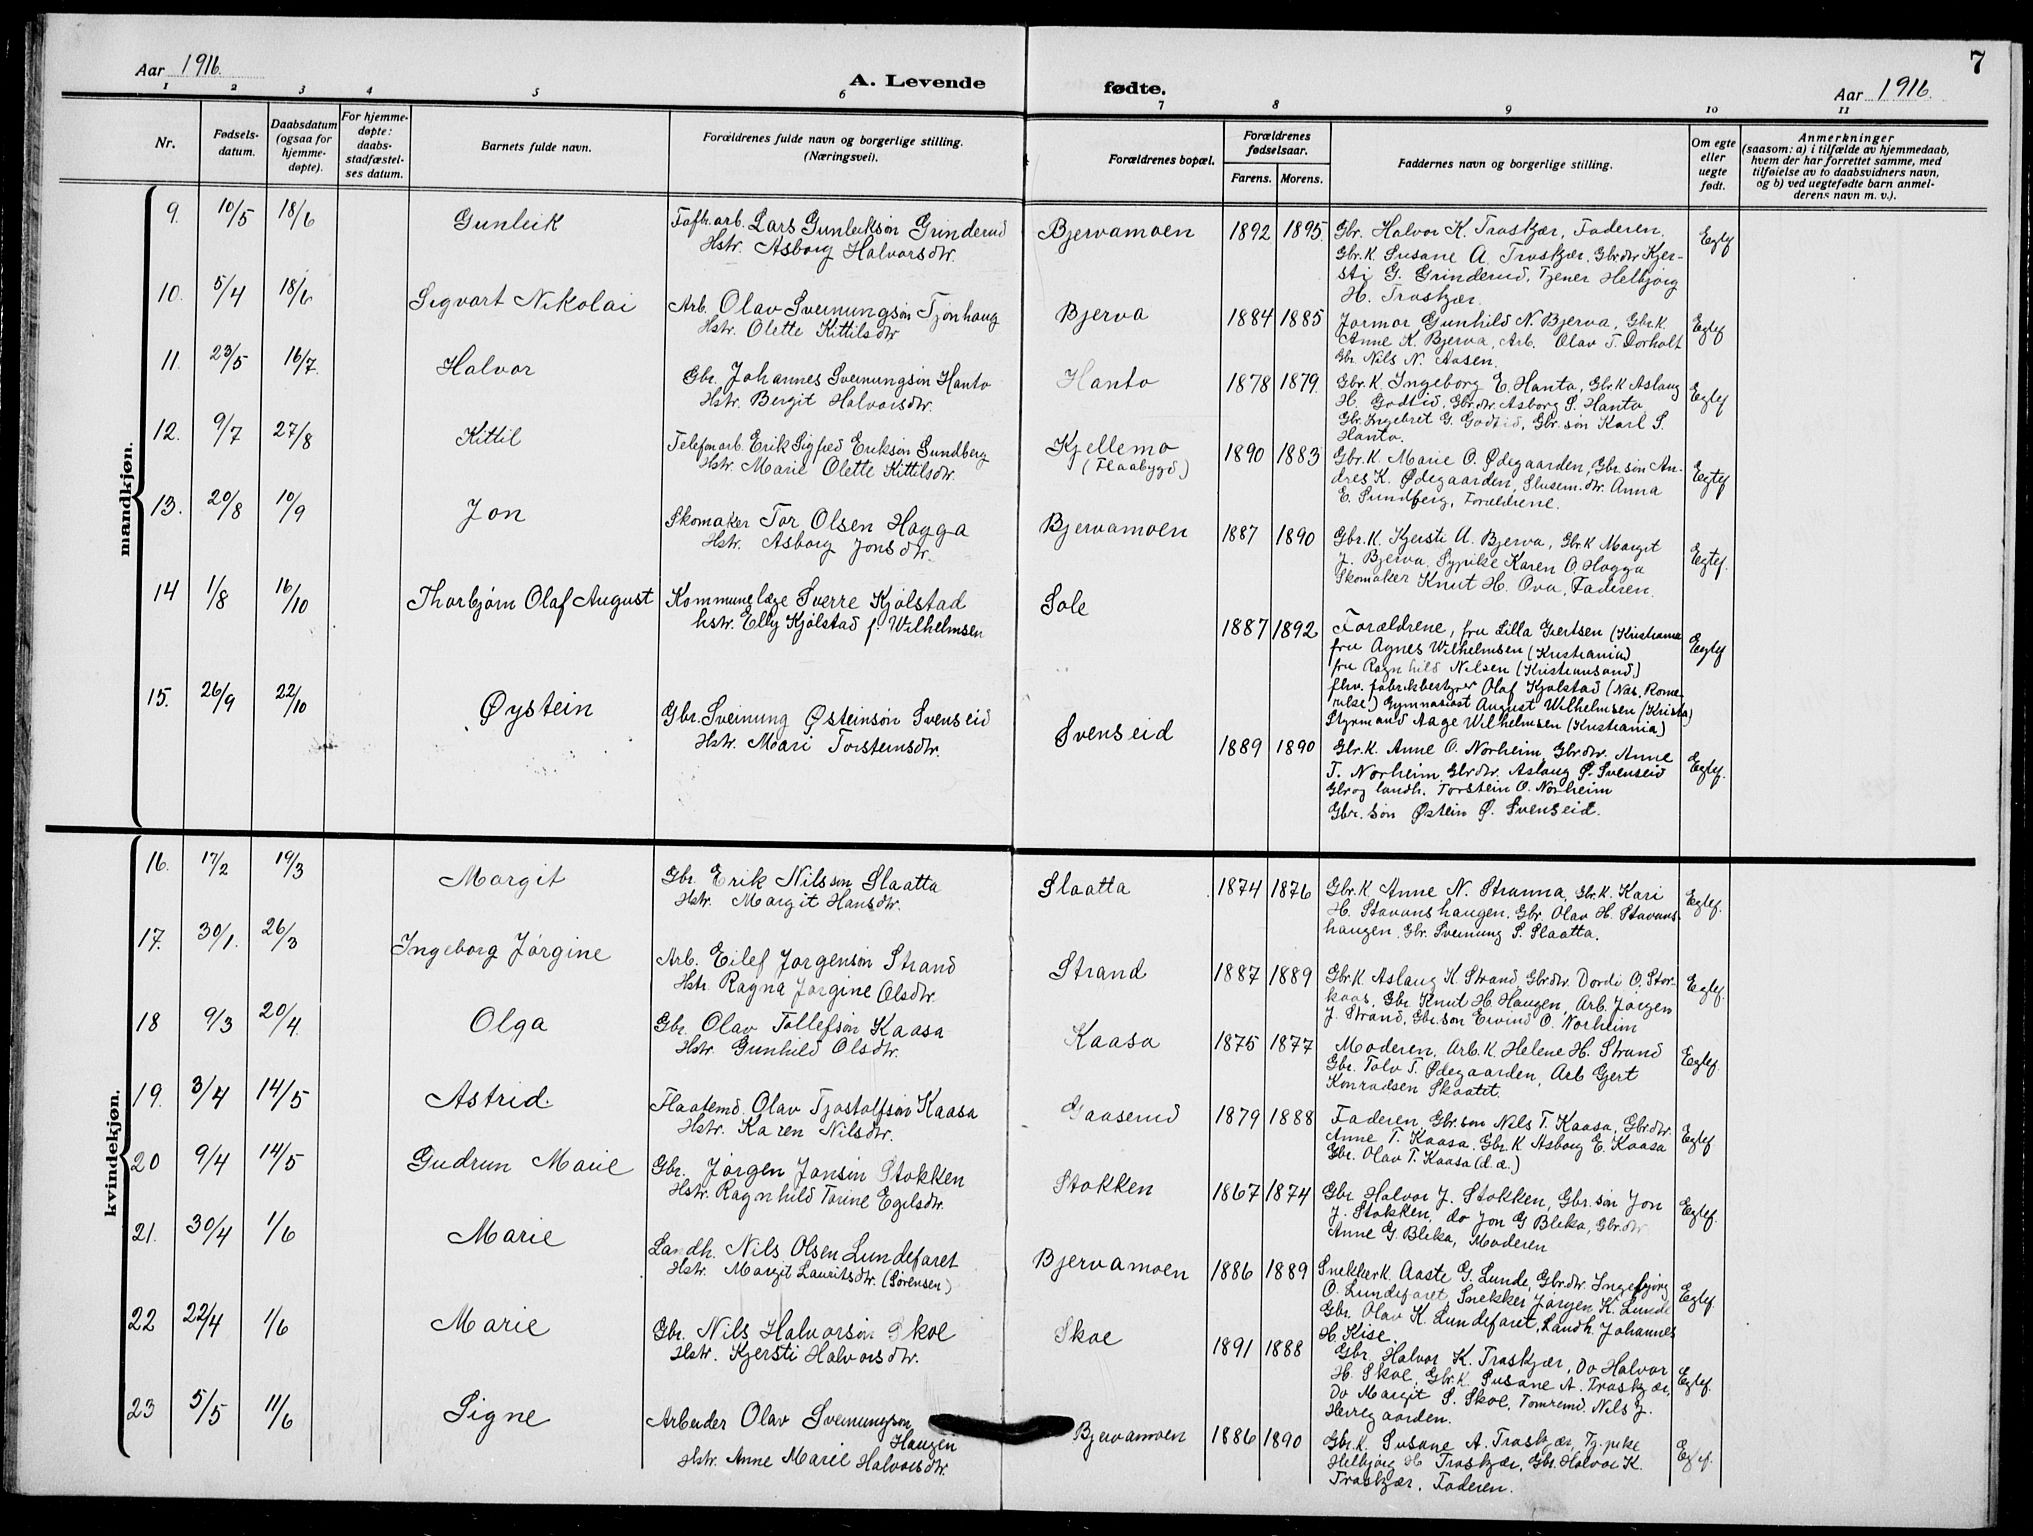 7
Aar 1916.
A. Levende fødte.
Aar 1916.
1 2 3 4 5 6 7 8 9 10 11
Nr.
Fødsels-
datum.
Daabsdatum
(ogsaa for
hjemme-
døpte).
For hjemme-
døpte:
daabs-
stadfæstel-
ses datum.
Barnets fulde navn.
Forældrenes fulde navn og borgerlige stilling.
(Næringsvei).
Forældrenes bopæl.
Forældrenes
fødselsaar.
Farens. Morens.
Faddernes navn og borgerlige stilling.
Om egte
eller
uegte
født.
Anmerkninger
(saasom: a) i tilfælde av hjemmedaab,
hvem der har forrettet samme, med
tilføielse av to daabsvidners navn,
og b) ved uegtefødte barn anmel-
derens navn m. v.).
mandkjøn.
9. 10/5 18/6 Gunleik
Lars Gunleiksøn Grinderud
Hstr. Asborg Halvorsdtr.
Bjervamoen 1892 1895.
Gbr. Halvor K. Traskjær, Faderen.
Gbr.K. Susane A. Traskjær. Gbrdtr. Kjer-
sti G. Grinderud, Tjener Helbjørg
H. Traskjær.
Egtef
10. 5/4 18/6 Sigvart Nikolai
Arb. Olav Sveinungsøn Tjønhaug
Hstr. Olette Kittilsdtr
Bjerva 1884 1885
Jormor Gunhild N. Bjerva, Gbr.K.
Anne K. Bjerva, Arb. Olav T. Dorholt
Gbr. Nils N. Aasen.
Egtef
11. 23/5 16/7. Halvor
Gbr. Johannes Sveinungsøn Hanto
Hstr. Bergit Halvorsdtr.
Hanto 1878 1879.
Gbr.K. Ingeborg E. Hanta, Gbr.K Aslaug
H. Godtid, Gbr.dtr. Asborg S. Hanto
Gbr. Ingebret G. Godtid, Gbr. søn Karl S.
Hanto.
Egtef
12. 9/7 27/8 Kittil
Telefonarb. Erik Sigfred Eriksøn Sundberg
Hstr. Marie Olette Kittilsdtr.
Kjellemo
(Flaabygd)
1890 1883
Gbr.K. Marie O. Ødegaarden, Gbr. søn An-
dres K. Ødegaarden, Slusem.dtr. Anna
E. Sundberg, Forældrene.
Egtef
13. 20/8 10/9 Jon
Skomaker Tor Olsen Hogga
Hstr. Asborg Jonsdtr.
Bjervamoen 1887 1890
Gbr.K. Kjersti A. Bjerva, Gbr.K Margit
J. Bjerva, Sypike Karen O. Hogga
Skomaker Knut H. Ova, Faderen.
Egtef.
14 1/8 16/10 Thorbjørn Olaf August
Kommunelæge Sverre Kjølstad
hstr. Elly Kjølstad f. Wilhelmsen
Sole 1887 1892
Forældrene, fru Lilla Gjertsen (Kristiania
fru Agnes Wilhelmsen (Kristiania)
fru Ragnhild Nilsen (Kristiansand)
fhv. fabrikbestyrer Olaf Kjølstad (Næs, Rome-
rike) Gymnasiast August Wilhelmsen (Krista)
Styrmand Aage Wilhelmsen (Kristiania)
Egtef
15. 26/9 22/10 Øystein
Gbr. Sveinung Østeinsøn Svenseid
Hstr. Mari Torsteinsdtr.
Svenseid 1889 1890
Gbr.K. Anne O. Norheim, Gbr.dtr. Anne
T. Norheim, Gbrdtr. Aslaug Ø. Svenseid
Gbr og landh. Torstein O. Norheim
Gbr. søn Østein Ø. Svenseid.
Egtef.
kvindekjøn.
16. 17/2 19/3 Margit
Gbr. Erik Nilssøn Slaatta
Hstr. Margit Hansdtr.
Slaatta 1874 1876
Gbr.K Anne N. Stranna, Gbr.K. Kari
H. Stavanshaugen, Gbr Olav H. Stavans-
haugen, Gbr. Sveinung S. Slaatta.
Egtef.
17. 30/1. 26/3 Ingeborg Jørgine
Arb. Eilef Jørgensøn Strand
Hstr. Ragna Jørgine Olsdtr.
Strand 1887 1889
Gbr.K Aslaug K. Strand Gbrdtr. Dordi O. Stor-
kaas, Gbr. Knut H. Haugen, Arb. Jørgen
J. Strand, Gbr.søn Eivind O. Norheim
Egtef.
18 9/3 20/4. Olga
Gbr. Olav Tollefsøn Kaasa
Hstr. Gunhild Olsdtr.
Kaasa 1875 1877
Moderen, Arb.K. Helene H. Strand
Gbr. Tolv T. Ødegaarden, Arb Gjert
Konradsen Skaatet.
Egtef.
19. 3/4 14/5 Astrid.
Flaatemd. Olav Tjostolfsøn Kaasa
Hstr. Karen Nilsdtr.
Gaaserud 1879 1888
Faderen, Gbr.søn Nils T. Kaasa, Gbr.dtr.
Anne T. Kaasa, Gbr.K Asborg E. Kaasa
Gbr. Olav T. Kaasa (d.æ.)
Egtef.
20 9/4 14/5 Gudrun Marie
Gbr. Jørgen Jonsøn Stokken
Hstr. Ragnhild Torine Egilsdtr.
Stokken 1867 1874
Gbr Halvor J. Stokken, Gbr. søn Jon
J. Stokken, do Jon G Bleka, Gbr.dtr.
Anne G. Bleka, Moderen
Egtef.
21. 30/4 1/6 Marie
Landh. Nils Olsen Lundefaret
Hstr. Margit Lauritsdtr. (Sørensen)
Bjervamoen 1886 1889
Snekker K. Aaste G. Lunde, Gbr.dtr. Ingebjørg
O. Lundefaret, Snekker Jørgen K. Lunde
Gbr. Olav K. Lundefaret, Landh. Johannes
H. Kise.
Egtef.
22 22/4 1/6 Marie
Gbr. Nils Halvorsøn Skoe
Hstr. Kjersti Halvorsdtr.
Skoe 1891 1888
Gbr. Halvor K. Traskjær, Do Halvor
H. Skoe, Gbr.K. Susane A. Traskjær,
Do Margit S. Skoe, Tømremd. Nils J.
Herregaarden.
Egtef.
23 5/5 11/6 Signe
Arbeider Olav Sveinungsøn
Haugen
Hstr. Anne Marie Halvorsdtr.
Bjervamoen 1886 1890
Gbr.K. Susane A. Traskjær, Tj.pike
Helbjørg H Traskjær, Gbr. Halvor K.
Traskjær, Faderen.
Egtef.